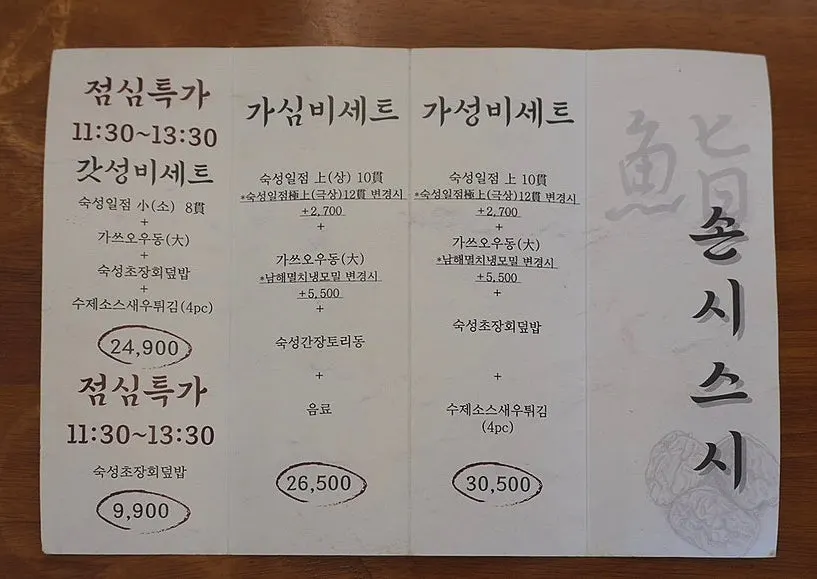 점심특가
11:30~13:30
갓성비세트
숙성일점 小(소) 8貫
+
가쓰오우동(大)
+
숙성초장회덮밥
+
수제소스새우튀김(4pc)
24,900
점심특가
11:30~13:30
숙성초장회덮밥
9,900
가심비세트
숙성일점 上(상) 10貫
*숙성일점極上(극상)12貫 변경시
+2,700
+
가쓰오우동(大)
*남해멸치냉모밀 변경시
+5,500
+
숙성간장토리동
+
음료
26,500
가성비세트
숙성일점 上 10貫
*숙성일점極上(극상)12貫 변경시
+2,700
+
가쓰오우동(大)
*남해멸치냉모밀 변경시
+5,500
+
숙성초장회덮밥
+
수제소스새우튀김
(4pc)
30,500
鮨
손시스시